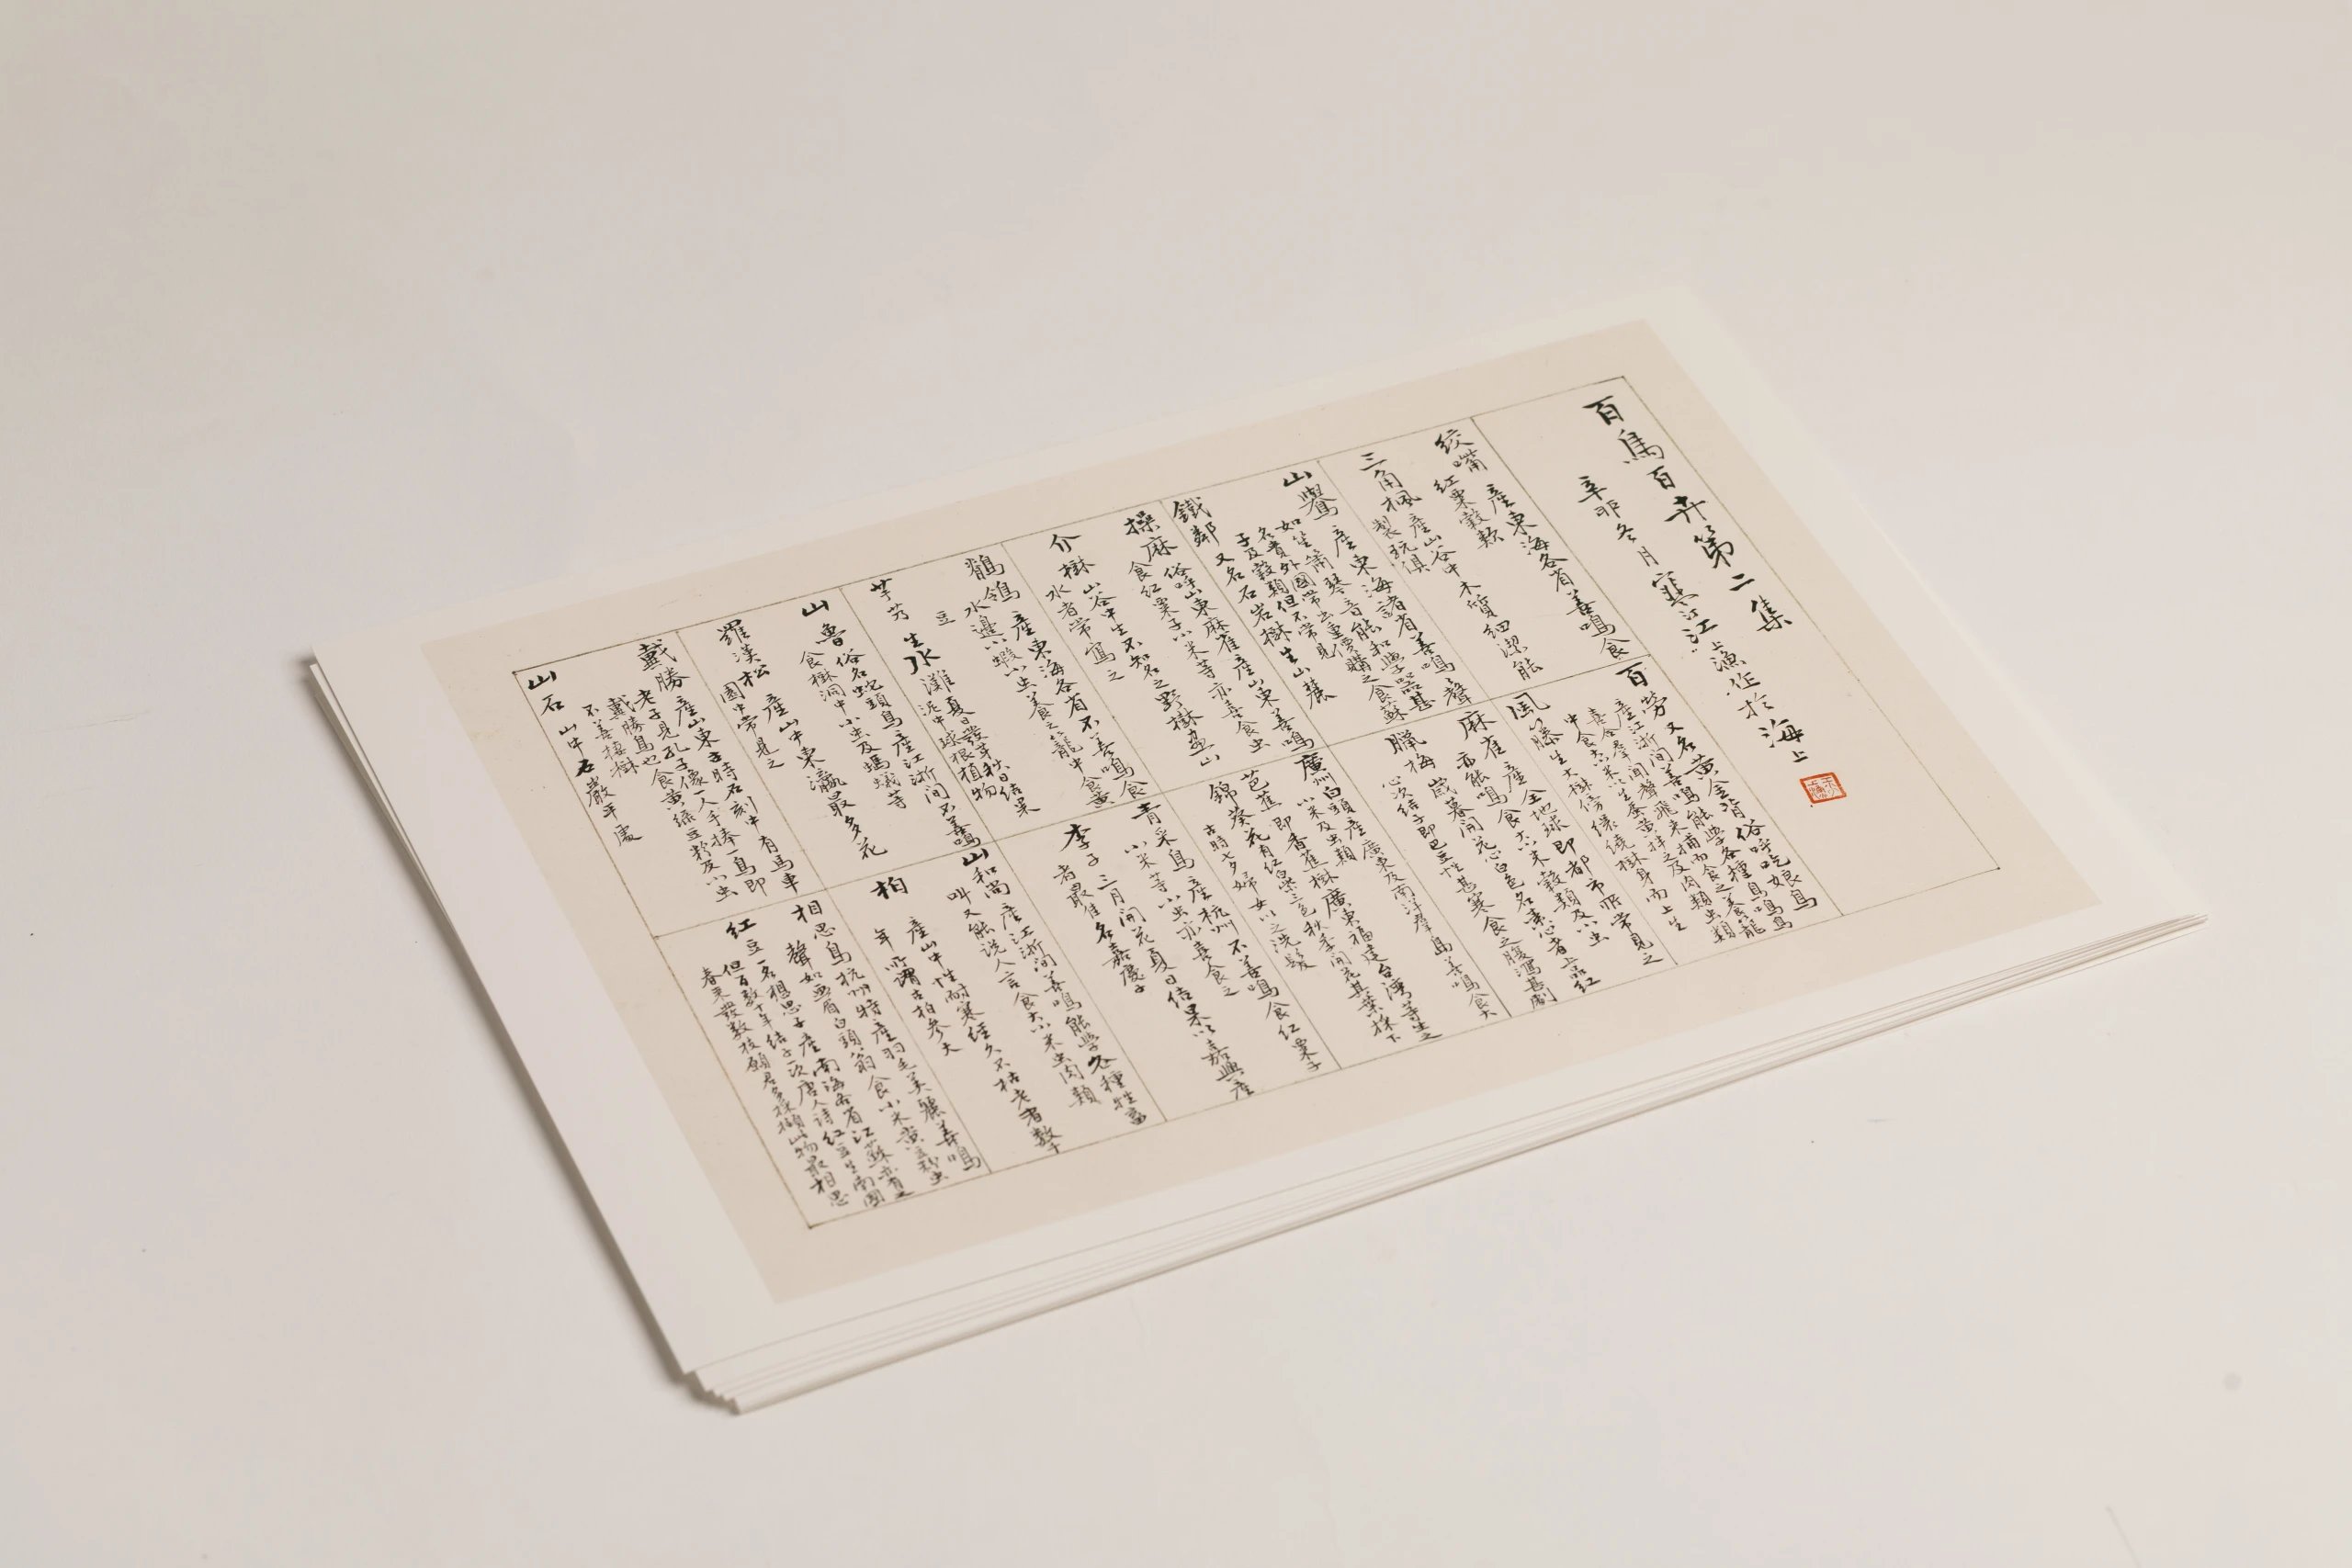 百鳥百卉第二集
辛卯冬月寒江漁作於海上
絞嘴 產東海各省善鳴食
紅粟穀類
三角楓 產山谷中木質細潔能
製玩俱
山鶯 產東海諸省善鳴聲
如笙簫琴音能和樂器甚
名貴外國常出重價購之食蘇
子及穀類但不常見
鐵鄰 又名石岩樹生山麓
操麻 俗呼山東麻雀產山東善鳴
食紅粟子小米等亦喜食虫
介樹 山谷中生不知名之野樹畫山
水者常寫之
鶺鴒 產東海各省不善鳴食
水邊小蝦小虫養之籠中食黃
豆
芋艿 生水灘夏日發芽秋日結果
泥中球根植物
山魯 俗名蛇頭鳥產江浙間不善鳴
食樹洞中小虫及螞蟻等
羅漢松 產山中東瀛最多花
園中常見之
戴勝 產山東古時石刻中有馬車
老子見孔子像一人手捧一鳥即
戴勝鳥也食黃綠豆粉及小虫
不善接樹
山石 山中石巖平處
百勞 又名黃金背俗呼吃娘鳥
產江浙間善鳴能學各種鳥鳴鳥
喜合羣聞聲飛來捕而食之養籠
中食大小米以生蛋黃拌之及肉類虫類
風籐 生大樹傍緣繞樹身而上生
麻雀 產全地球即都市所常見之
亦能鳴食大小米穀類及小虫
臘梅 歲暮開花心白色名素心者上品紅
心次結子即巴豆性甚寒食之腹瀉甚劇
廣州白頭 產廣東及南洋羣島善鳴食大
小米及虫類
芭蕉 即香蕉樹廣東福建台灣等生之
錦葵 花有紅白紫三色秋季開花其葉採下
古時七夕婦女以之洗髮
青采鳥 產杭州不善鳴食紅粟子
小米等小虫亦喜食之
李子 三月開花夏日結果以嘉興產
者最佳名嘉慶子
山和尚 產江浙間善鳴能學各種牲畜
叫又能說人言食大小米虫肉類
柏 產山中性耐寒經久不枯老者數千
年所謂古柏參天
相思鳥 杭州特產羽毛美麗善鳴
聲如画眉白頭翁食小米黃豆粉虫
紅豆 一名相思子產南海各省江蘇亦有之
但百數十年結子一次唐人詩紅豆生南國
春來發數枝願君多採擷此物最相思